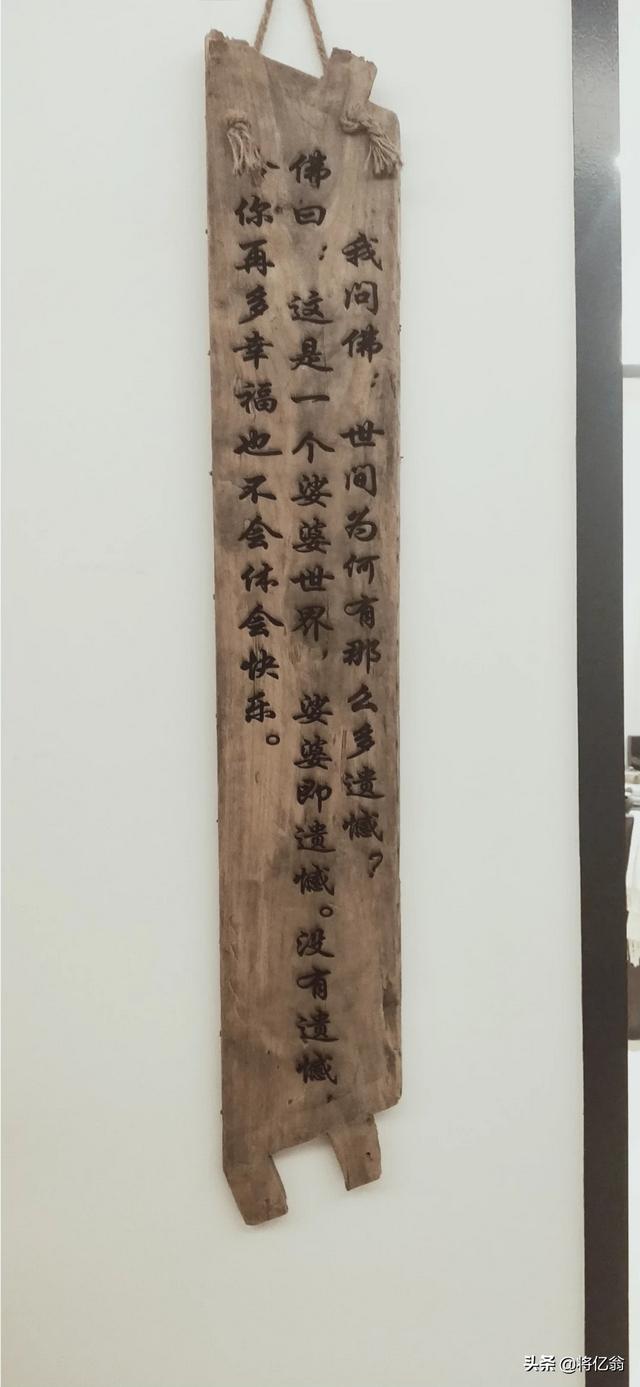 我问佛：世间为何有那么多遗憾？
佛曰：这是一个娑婆世界，娑婆即遗憾。没有遗憾，
你再多幸福也不会体会快乐。
头条 @将亿翁